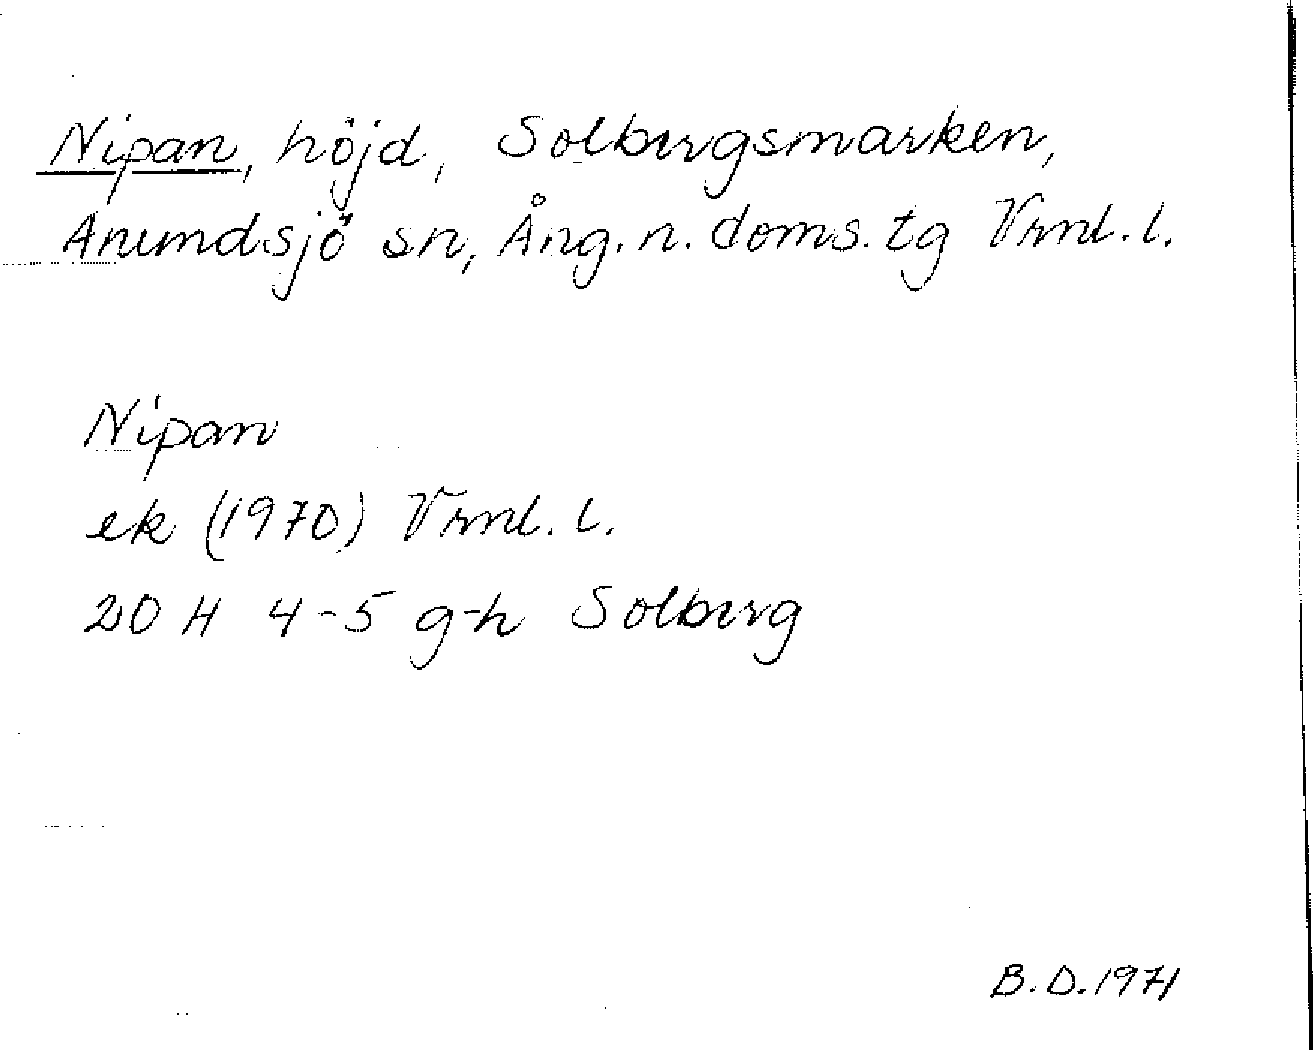 Nipan, höjd, Solbergsmarken,
Anundsjö sn, Ång. n. doms. tg Vrml. l.
Nipan
ek (1970) Vrml. l.
20 H 4-5 g-h Solberg
B.D. 1971